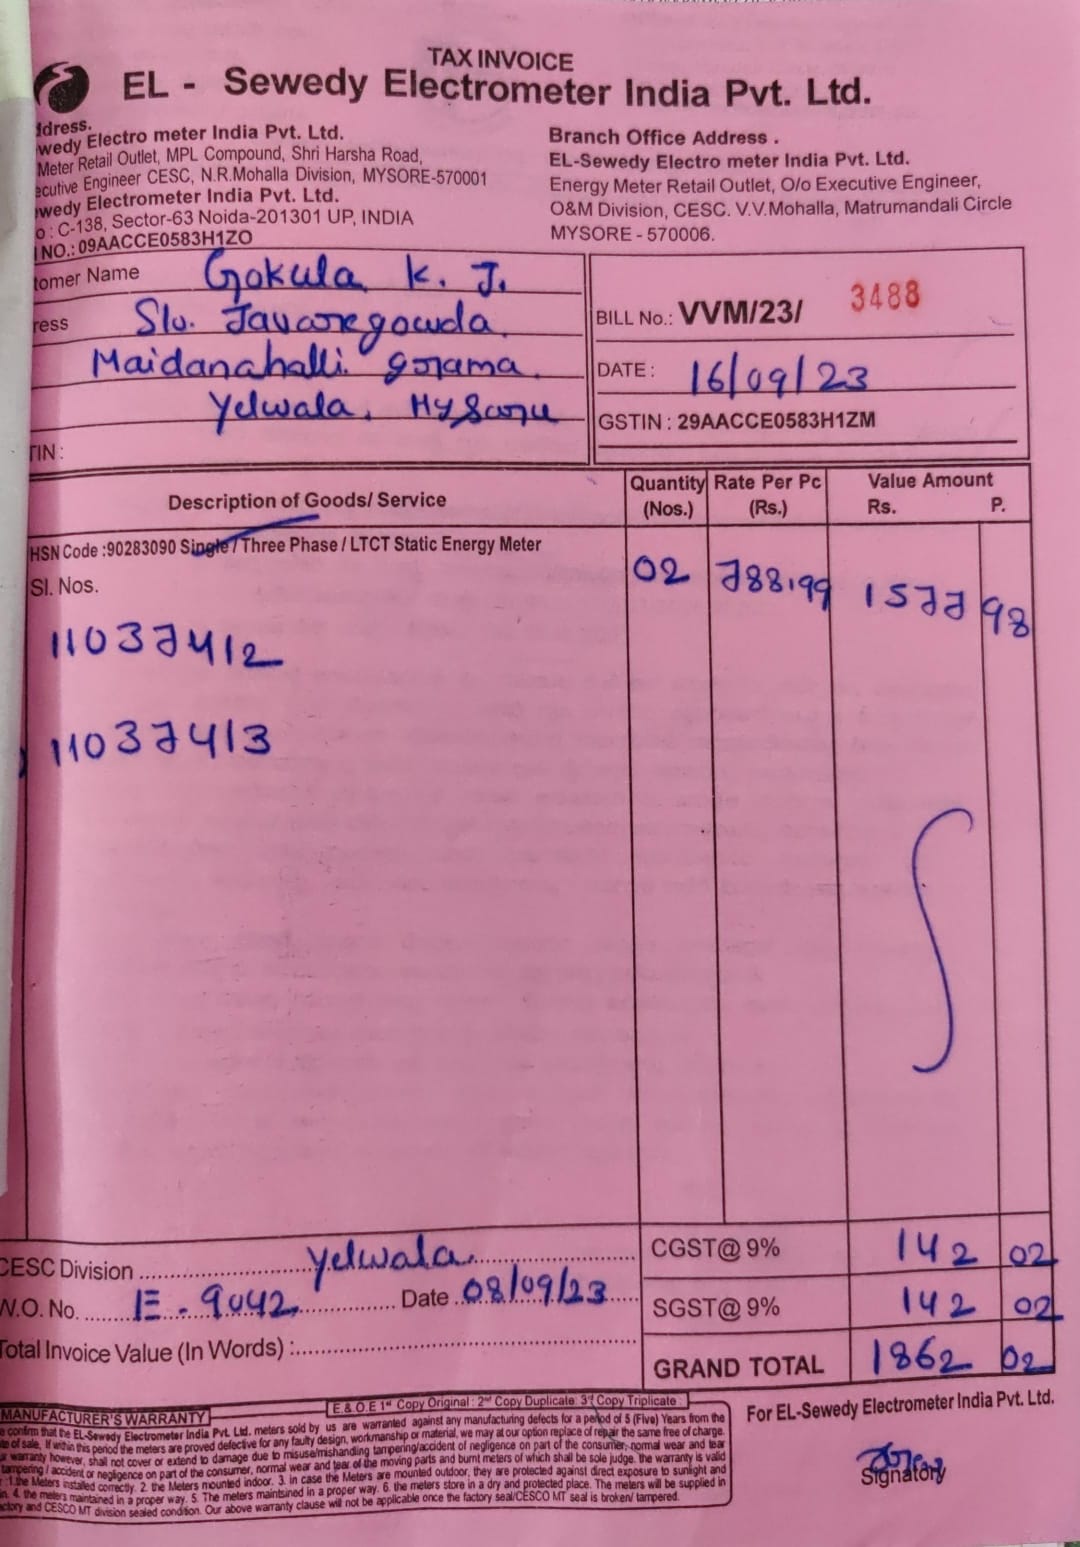 TAX INVOICE
EL - Sewedy Electrometer India Pvt. Ltd.
ddress.
wedy Electro meter India Pvt. Ltd.
Meter Retail Outlet, MPL Compound, Shri Harsha Road,
ecutive Engineer CESC, N.R.Mohalla Division, MYSORE-570001
ewedy Electrometer India Pvt. Ltd.
o : C-138, Sector-63 Noida-201301 UP, INDIA
NO.: 09AACCE0583H1ZO
Branch Office Address .
EL-Sewedy Electro meter India Pvt. Ltd.
Energy Meter Retail Outlet, O/o Executive Engineer,
O&M Division, CESC. V.V.Mohalla, Matrumandali Circle
MYSORE - 570006.
tomer Name Gokula K. J.
ress S/o. Javaregowda
Maidanahalli grama.
Yelwala, Mysore
TIN :
BILL No.: VVM/23/ 3488
DATE : 16/09/23
GSTIN : 29AACCE0583H1ZM
Description of Goods/ Service Quantity (Nos.) Rate Per Pc (Rs.) Value Amount Rs. P.
HSN Code :90283090 Single / Three Phase / LTCT Static Energy Meter 02 788.99 1577 98
Sl. Nos.
11037412
11037413
CESC Division Yelwala
W.O. No. E - 9042 Date 08/09/23
Total Invoice Value (In Words) :
CGST@ 9% 142 02
SGST@ 9% 142 02
GRAND TOTAL 1862 02
E.& O.E 1st Copy Original : 2nd Copy Duplicate: 3rd Copy Triplicate
MANUFACTURER'S WARRANTY
confirm that the EL-Sewedy Electrometer India Pvt. Ltd. meters sold by us are warranted against any manufacturing defects for a period of 5 (Five) Years from the
of sale. If within this period the meters are proved defective for any faulty design, workmanship or material, we may at our option replace of repair the same free of charge.
warranty however, shall not cover or extend to damage due to misuse/mishandling tampering/accident of negligence on part of the consumer, normal wear and tear
tampering / accident or negligence on part of the consumer, normal wear and tear of the moving parts and burnt meters of which shall be sole judge. the warranty is valid
: 1.the Meters installed correctly. 2. the Meters mounted indoor. 3. in case the Meters are mounted outdoor, they are protected against direct exposure to sunlight and
in. 4. the meters maintained in a proper way. 5. The meters maintsined in a proper way. 6. the meters store in a dry and protected place. The meters will be supplied in
ctory and CESCO MT division sealed condition. Our above warranty clause will not be applicable once the factory seal/CESCO MT seal is broken/ tampered.
For EL-Sewedy Electrometer India Pvt. Ltd.
Signatory